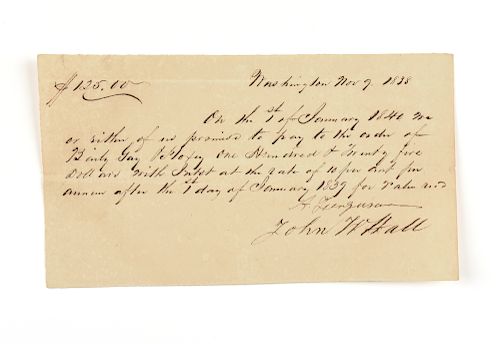 $125.00 Washington Nov 9. 1838
On the 1st of January 1840 we
or either of us promise to pay to the order of
Guy One Hundred & Twenty five
dollars with Intst at the rate of 10 per cent per
annum after the 1st day of January 1839 for value recd
Ferguson
John W Hall